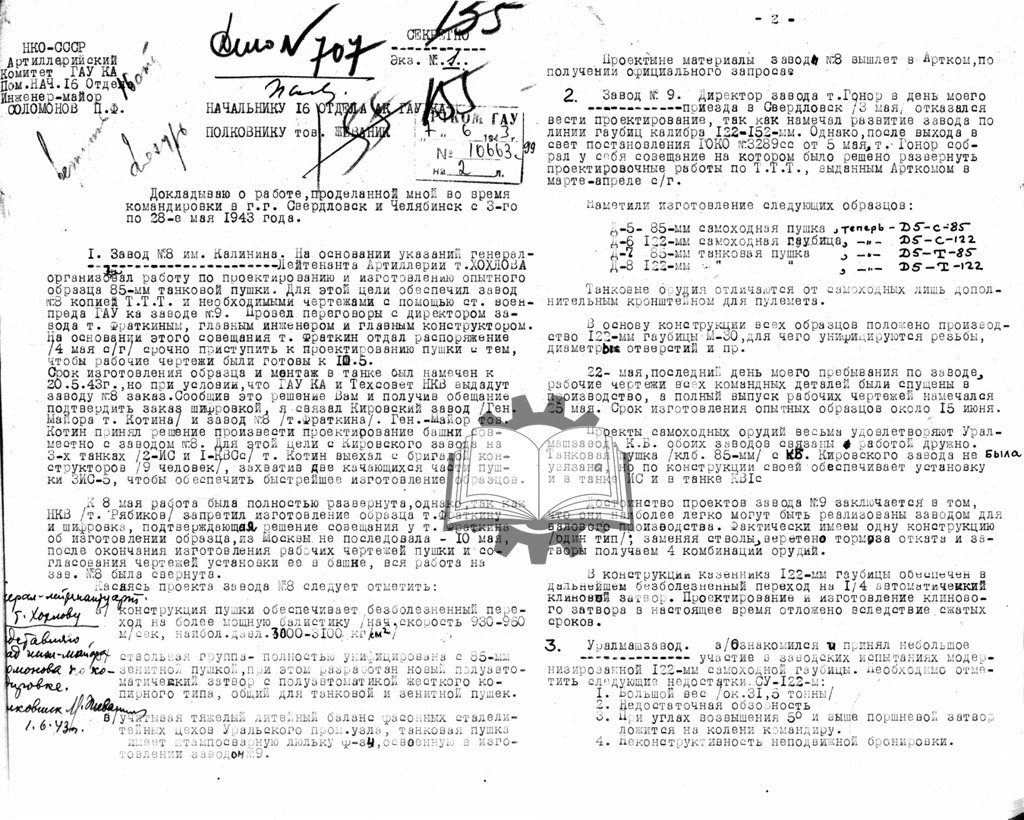 155
Дело № 707
НКО-СССР
Артиллерийский
Комитет ГАУ КА
Пом.НАЧ.16 Отдела
Инженер-майор
СОЛОМОНОВ П.Ф.
СЕКРЕТНО
Экз. № 1.
155
НАЧАЛЬНИКУ 16 ОТДЕЛА АК ГАУ КА
ПОЛКОВНИКУ тов. ЖЕВАНИК
АРТКОМ ГАУ
6 1943
№ 10663
на 2 л.
Докладываю о работе,проделанной мной во время
командировки в г.г. Свердловск и Челябинск с 3-го
по 28-е мая 1943 года.
I. Завод №8 им. Калинина. На основании указаний генерал-
Лейтенанта Артиллерии т.ХОХЛОВА
организовал работу по проектированию и изготовлению опытного
образца 85-мм танковой пушки. Для этой цели обеспечил завод
№8 копией Т.Т.Т. и необходимыми чертежами с помощью ст. воен-
преда ГАУ ка заводе №9. Провел переговоры с директором за-
вода т. Фраткиным, главным инженером и главным конструктором.
На основании этого совещания т. Фраткин отдал распоряжение
/4 мая с/г/ срочно приступить к проектированию пушки с тем,
чтобы рабочие чертежи были готовы к 10.5.
Срок изготовления образца и монтаж в танке был намечен к
20.5.43г.,но при условии,что ГАУ КА и Техсовет НКВ выдадут
заводу №8 заказ.Сообщив это решение Вам и получив обещание
подтвердить заказ шифровкой, я связал Кировский завод /Ген.
Майора т. Котина/ и завод №8 /т.Фраткина/. Ген.-Майор тов.
Котин принял решение произвести проектирование башни сов-
местно с заводом №8. Для этой цели с Кировского завода на
3-х танках /2-ИС и I-КВСс/ т. Котин выехал с бригадой кон-
структоров /9 человек/, захватив две качающихся части пуш-
ки ЗИС-5, чтобы обеспечить быстрейшее изготовление образцов.
К 8 мая работа была полностью развернута,однако,так как
НКВ /т. Рябиков/ запретил изготовление образца т.Фраткину
и шифровка, подтверждающая решение совещания у т. Фраткина
об изготовлении образца,из Москвы не последовала - 10 мая,
после окончания изготовления рабочих чертежей пушки и со-
гласования чертежей установки ее в башне, вся работа на
зав. №8 была свернута.
Касаясь проекта завода №8 следует отметить:
конструкция пушки обеспечивает безболезненный пере-
ход на более мощную балистику /нач.скорость 930-960
м/сек, наибол.давл.3000-3100 кг/см²/
ствольная группа- полностью унифицирована с 85-мм
зенитной пушкой,при этом разработан новый полуавто-
матический затвор с полуавтоматикой жесткого ко-
пирного типа, общий для танковой и зенитной пушек.
в/учитывая тяжелый литейный баланс фасонных сталели-
тейных цехов Уральского пром.узла, танковая пушка
имеет штампосварную люльку ф-зу,освоенную в изго-
товлении заводом №9.
т. Хохлову
1.6.43г.
- 2 -
Проектыне материалы завод №8 вышлет в Артком,по
получении официального запроса.
2. Завод № 9. Директор завода т.Гонор в день моего
приезда в Свердловск /3 мая/ отказался
вести проектирование, так как намечал развитие завода по
линии гаубиц калибра 122-152-мм. Однако,после выхода в
свет постановления ГОКО №3289сс от 5 мая,т. Гонор соб-
рал у себя совещание на котором было решено развернуть
проектировочные работы по Т.Т.Т., выданным Арткомом в
марте-апреле с/г.
Наметили изготовление следующих образцов:
Д-5- 85-мм самоходная пушка, теперь - D5-С-85
Д-6 122-мм самоходная гаубица, -„- D5-С-122
Д-7 85-мм танковая пушка , -„- D5-Т-85
Д-8 122-мм " " , -„- D5-Т-122
Танковые орудия отличаются от самоходных лишь допол-
нительным кронштейном для пулемета.
В основу конструкции всех образцов положено производ-
ство 122-мм гаубицы М-30,для чего унифицируются резьбы,
диаметры отверстий и пр.
22- мая,последний день моего пребывания по заводе,
рабочие чертежи всех командных деталей были спущены в
производство, а полный выпуск рабочих чертежей намечался
25 мая. Срок изготовления опытных образцов около 15 июня.
Проекты самоходных орудий весьма удовлетворяют Урал-
машзавод. К.Б. обоих заводов связаны работой дружно.
Танковая пушка /клб. 85-мм/ с КБ. Кировского завода не была
увязана, но по конструкции своей обеспечивает установку
и в танке ИС и в танке КВIс
Достоинство проектов завода №9 заключается в том,
что они наиболее легко могут быть реализованы заводом для
валового производства. Фактически имеем одну конструкцию
/один тип/; заменяя стволы,веретено тормоза отката и за-
творы получаем 4 комбинации орудий.
В конструкции казенника 122-мм гаубицы обеспечен в
дальнейшем безболезненный переход на 1/4 автоматический
клиновой затвор. Проектирование и изготовление клиново-
го затвора в настоящее время отложено вследствие сжатых
сроков.
3. Уралмашзавод. а/Ознакомился и принял небольшое
участие в заводских испытаниях модер-
низированной 122-мм самоходной гаубицы. Необходимо отме-
тить следующие недостатки СУ-122-м:
1. Большой вес /ок.31,5 тонны/
2. Недостаточная обзорность
3. При углах возвышения 5° и выше поршневой затвор
ложится на колени командиру.
4. Неконструктивность неподвижной бронировки.